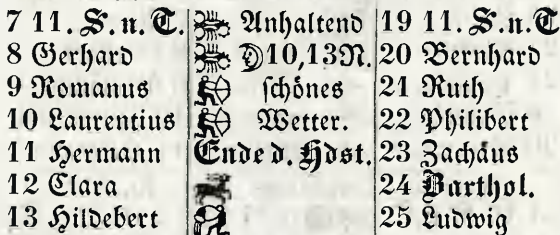 7 11. S. n. T. Anhaltend 19 11. S. n. T
8 Gerhard 10,13N. 20 Bernhard
9 Romanus ſchönes 21 Ruth
10 Laurentius Wetter. 22 Philibert
11 Hermann Ende d. Hdst. 23 Zachäus
12 Clara 24 Barthol.
13 Hildebert 25 Ludwig